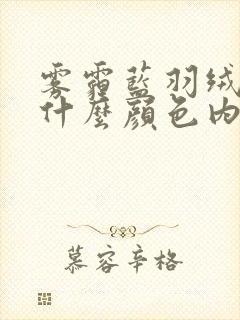 雾霾蓝羽绒
什麼顏色内
慕容辛格